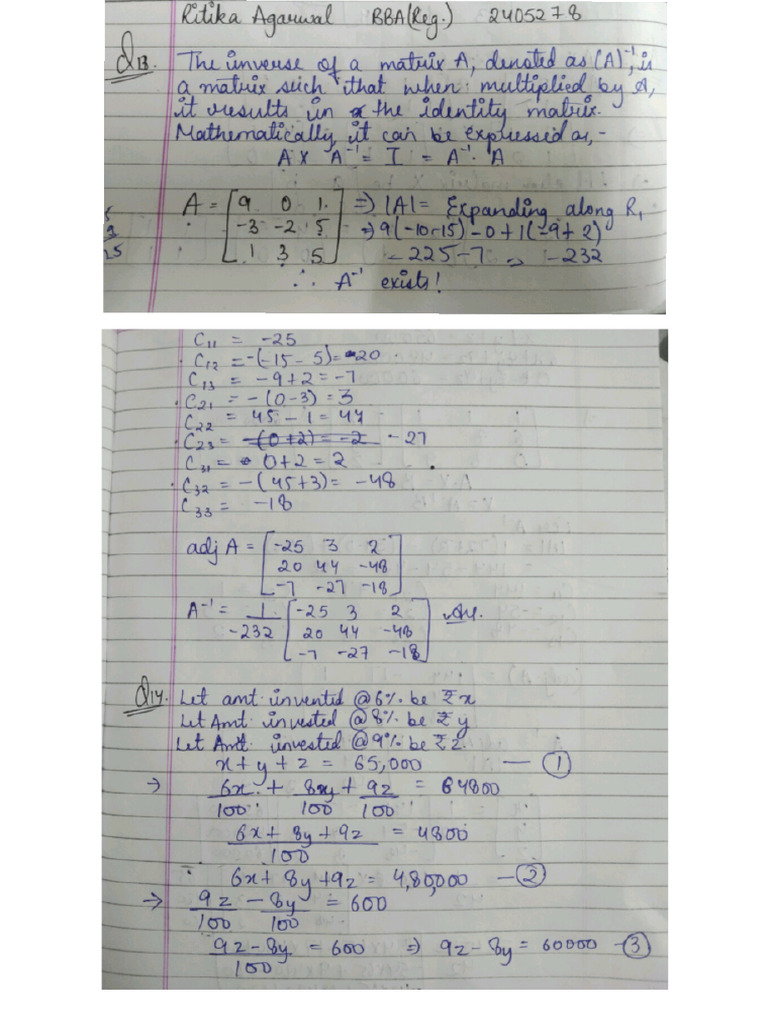 Ritika Agarwal BBA(Reg.) 2405278
Q13. The inverse of a matrix A, denoted as (A)⁻¹, is
a matrix such that when multiplied by A,
it results in the identity matrix.
Mathematically it can be expressed as,-
A × A⁻¹ = I = A⁻¹. A
A = [ 9 0 1 ⇒ |A| = Expanding along R₁
-3 -2 5 ⇒ 9(-10-15)-0+1(-9+2)
1 3 5 ] -225-7 ⇒ -232
∴ A⁻¹ exists!
C₁₁ = -25
C₁₂ = -(-15-5) = 20
C₁₃ = -9+2 = -7
C₂₁ = -(0-3) = 3
C₂₂ = 45-1 = 44
C₂₃ = -(0+2) = -2 -27
C₃₁ = 0+2 = 2
C₃₂ = -(45+3) = -48
C₃₃ = -18
adj A = [ -25 3 2
20 44 -48
-7 -27 -18 ]
A⁻¹ = 1 [ -25 3 2 Ans.
-232 20 44 -48
-7 -27 -18 ]
Q14. Let amt invented @6% be ₹x
Let Amt invested @8% be ₹y
Let Amt. invested @9% be ₹z
x + y + z = 65,000 — ①
→ 6x + 8y + 9z = 64800
100 100 100
6x + 8y + 9z = 4800
100
∵ 6x + 8y + 9z = 4,80,000 — ②
→ 9z - 8y = 600
100 100
9z - 8y = 600 ⇒ 9z - 8y = 60000 — ③
100